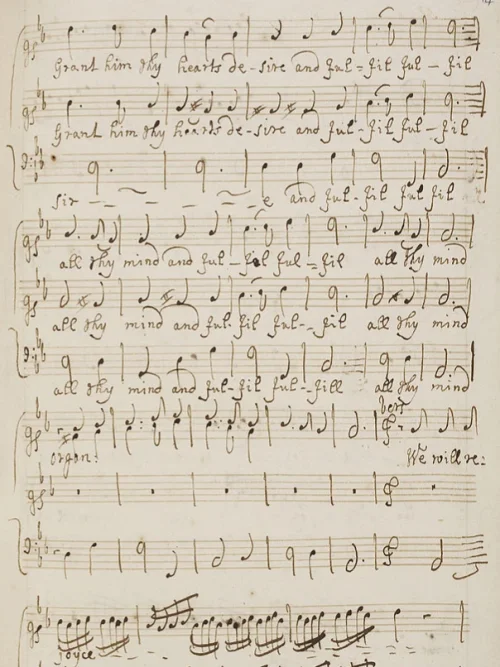 Grant him thy hearts de-sire and ful-fil ful-fil
Grant him thy hearts de-sire and ful-fil ful-fil
sir - - - - - e and ful-fil ful fil
all thy mind and ful-fil ful-fil all thy mind
all thy mind and ful-fil ful-fil all thy mind
all thy mind and ful-fil ful-fill all thy mind
vers
organ: We will re:
joyce